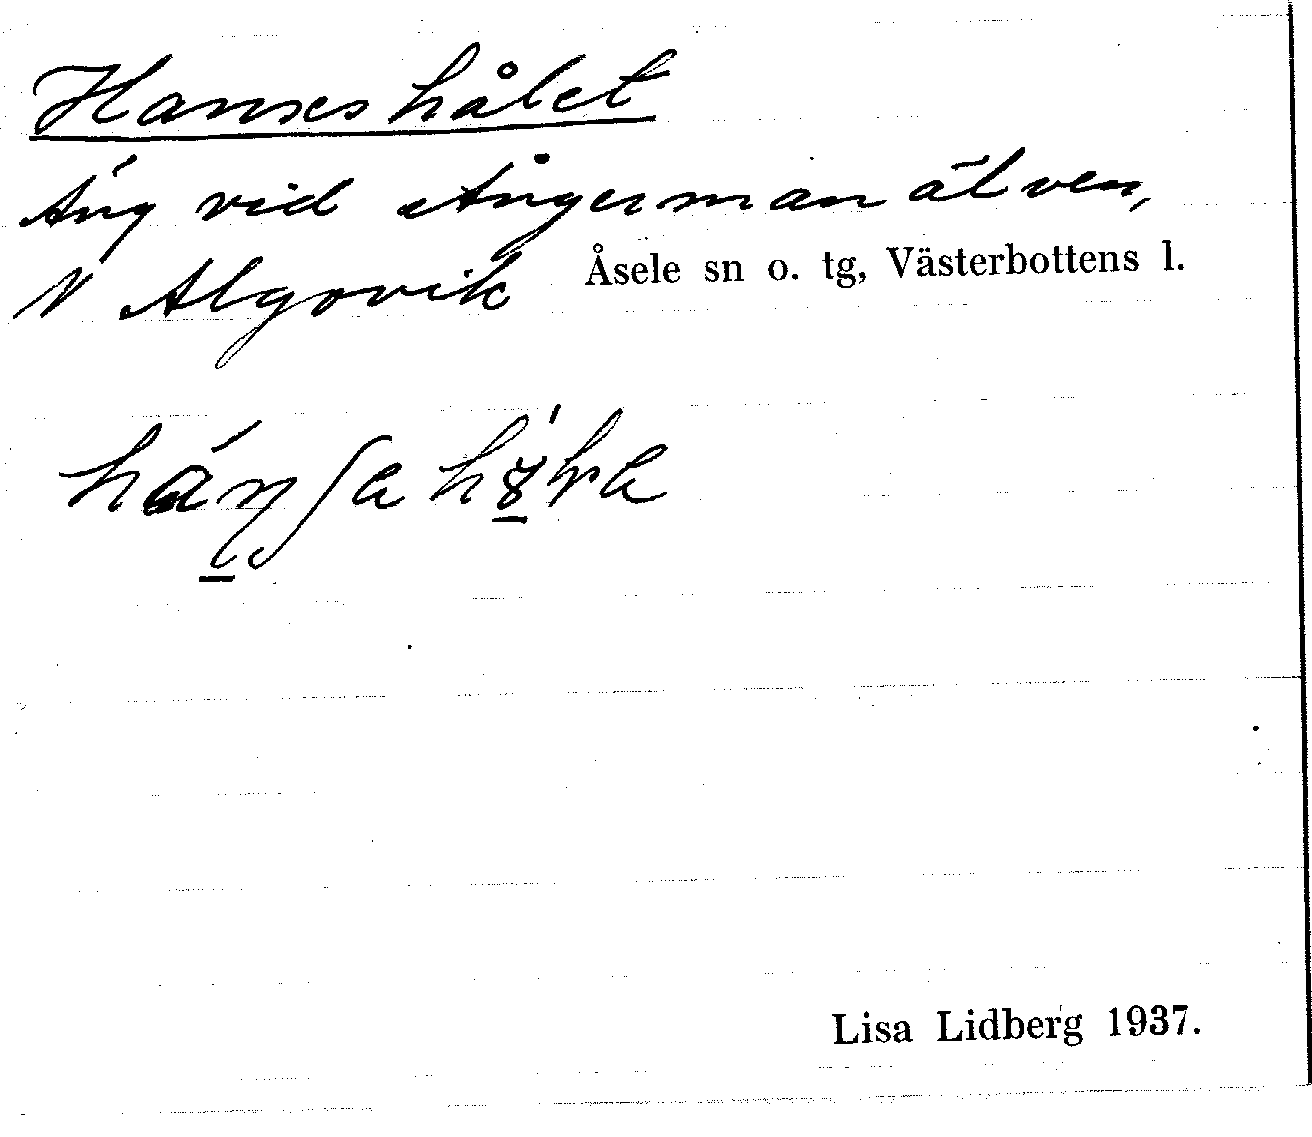 Hanses hålet
Äng vid Ångermanälven,
N Algovik Åsele sn o. tg, Västerbottens l.
Lisa Lidberg 1937.